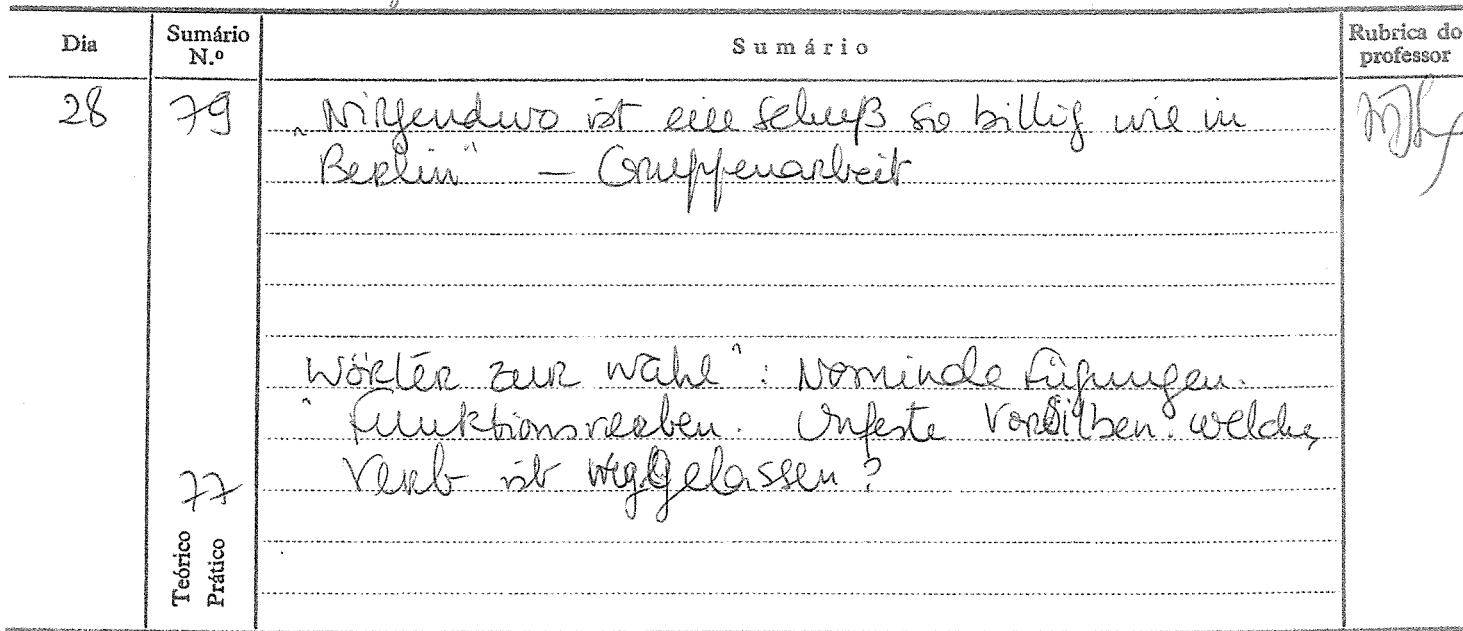 Dia Sumário N.º Sumário Rubrica do professor
28 79 "Nirgendwo ist eine Schuß so billig wie in
Berlin" — Gruppenarbeit
Wörter zur Wahl": Nominale Fügungen.
"Funktionsverben. Unfeste Vorsilben: welches
77 Verb ist weggelassen?
Teórico
Prático